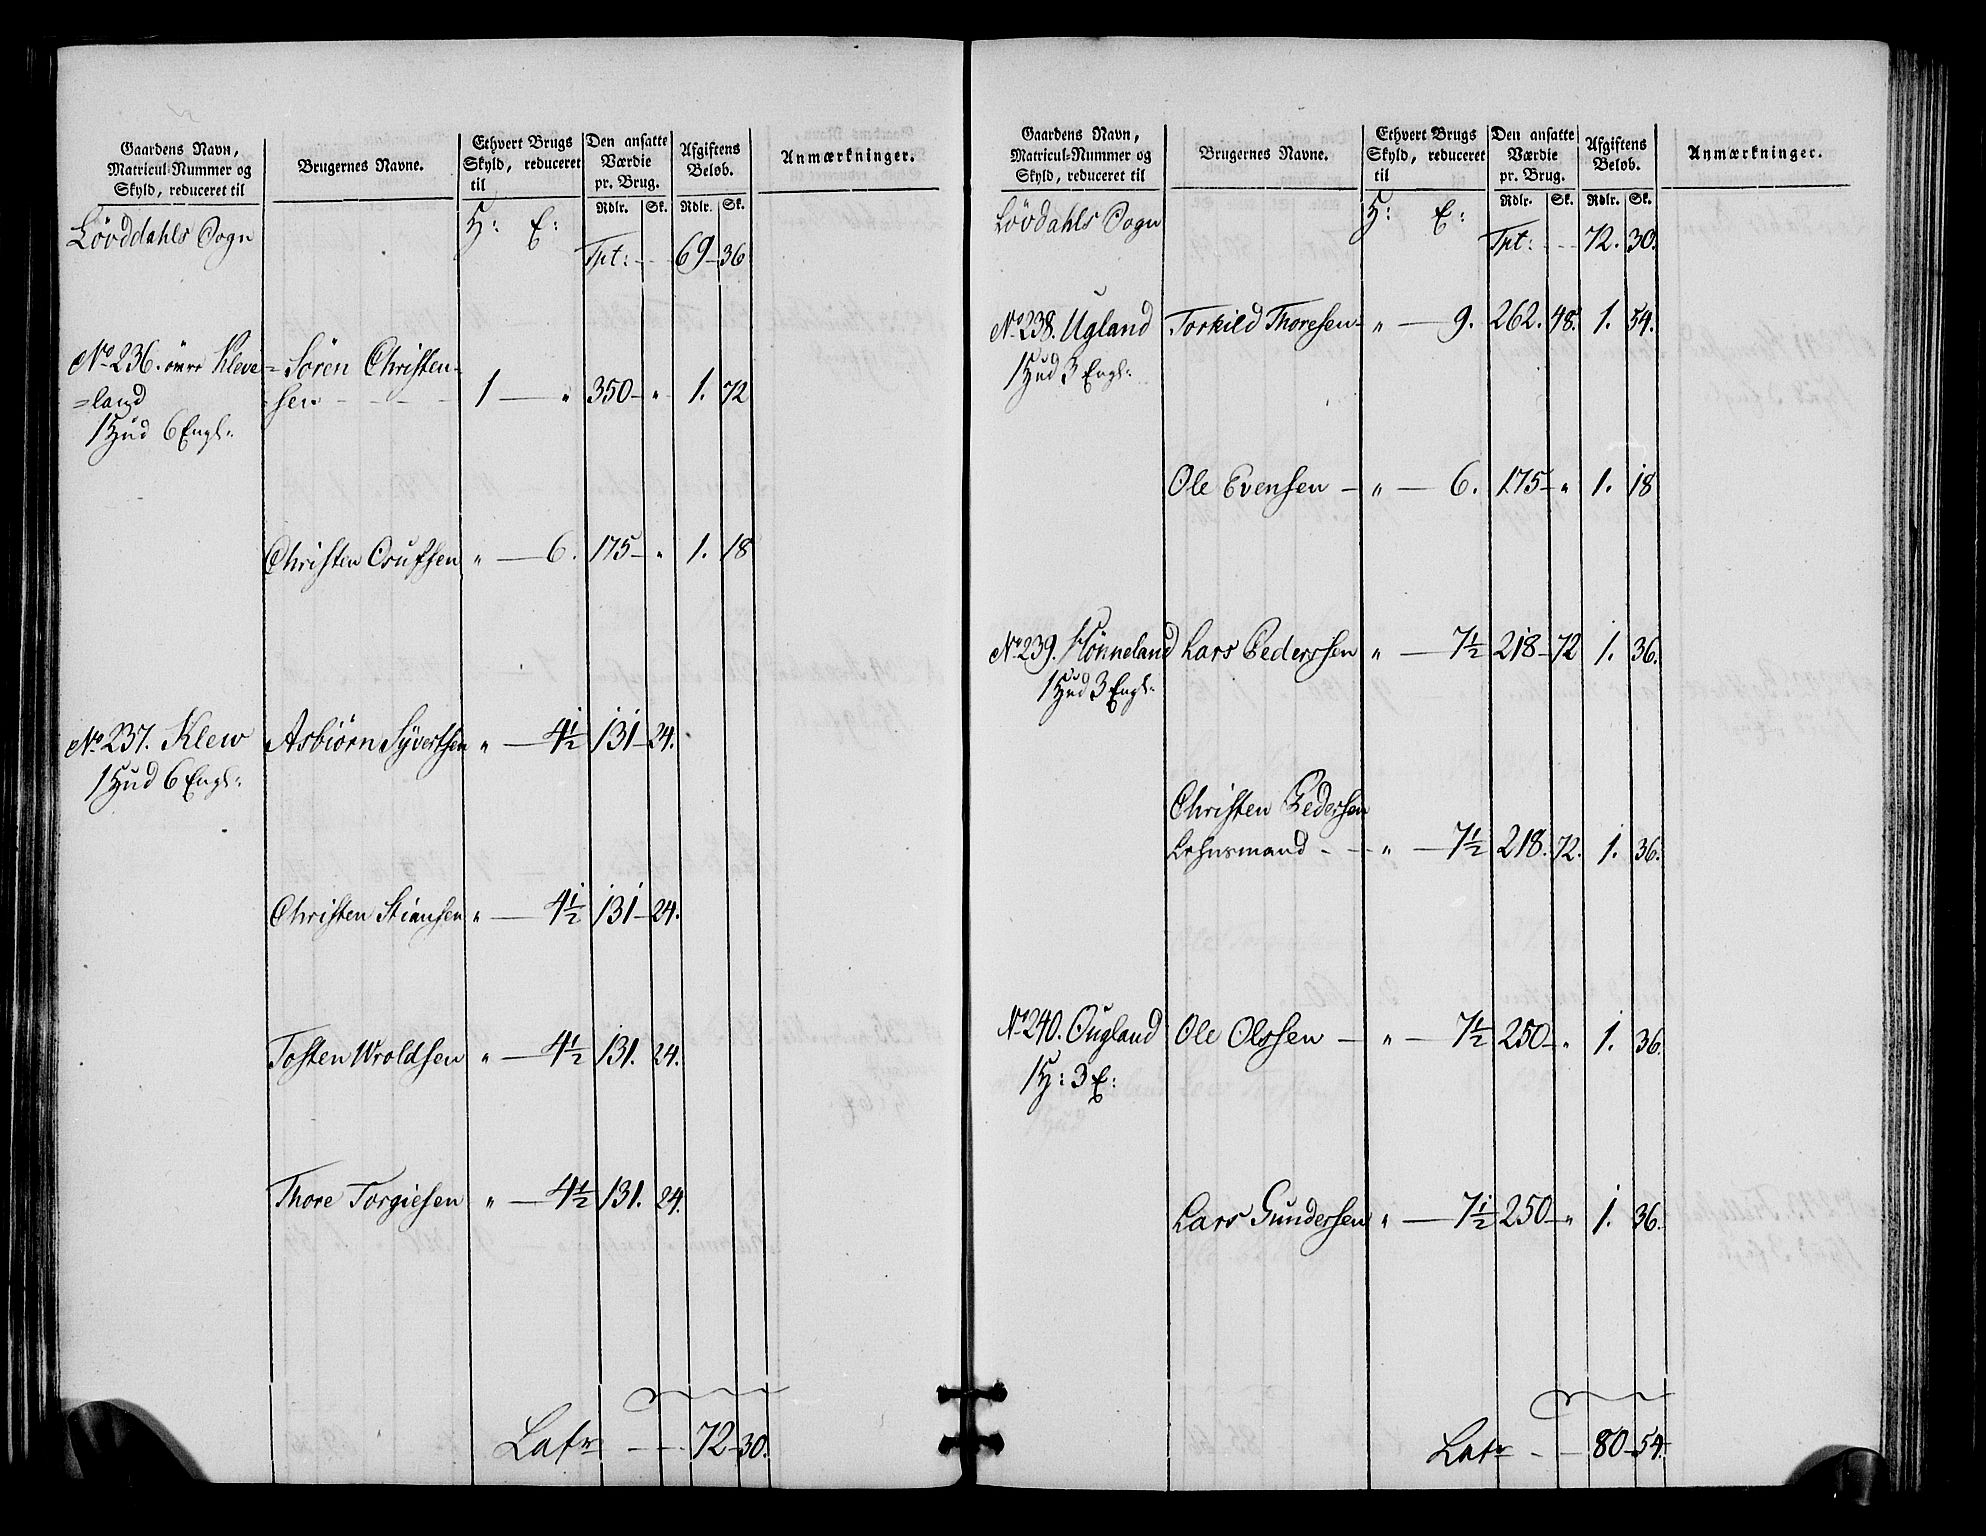 Gaardens Navn,
Matricul-Nummer og
Skyld, reduceret til
Brugernes Navne.
Ethvert Brugs
Skyld, reduceret
til
Den ansatte
Værdie
pr. Brug.
Rdlr. Sk.
Afgiftens
Beløb.
Rdlr. Sk.
Anmærkninger.
Lövddahls Sogn H: E: Tpt: - - 69 - 36
No 236. övre Kleve = Sören Christen-
=land =sen - - - 1 — " 350 - " 1. 72
1 Hud 6 Engl:
Christen Osufsen " — 6. 175 - " 1. 18
No 237. Klew Asbiörn Syvertsen " — 4 1/2 131 - 24.
1 Hud 6 Engl:
Christen Stiansen " — 4 1/2 131 - 24.
Tosten Wroldsen " — 4 1/2 131. 24.
Thore Torgiesen " — 4 1/2 131. 24.
Latr - - 72 - 30.
Gaardens Navn,
Matricul-Nummer og
Skyld, reduceret til
Brugernes Navne.
Ethvert Brugs
Skyld, reduceret
til
Den ansatte
Værdie
pr. Brug.
Rdlr. Sk.
Afgiftens
Beløb.
Rdlr. Sk.
Anmærkninger.
Lövdahls Sogn H: E: Tpt: - - 72. 30.
No 238. Ugland Torkild Thoresen - " — 9. 262. 48. 1. 54.
1 Hud 3 Engl:
Ole Evensen - " — 6. 175 - " 1. 18
No 239. Hönneland Lars Pederssen " — 7 1/2 218 - 72 1. 36.
1 Hud 3 Engl:
Christen Pedersen
Lehnsmand - - " — 7 1/2 218. 72. 1. 36.
No 240. Ougland Ole Olssen - " — 7 1/2 250 - " 1. 36.
1 H: 3 E:
Lars Gundersen " — 7 1/2 250 - " 1. 36.
Latr - - 80 - 54.